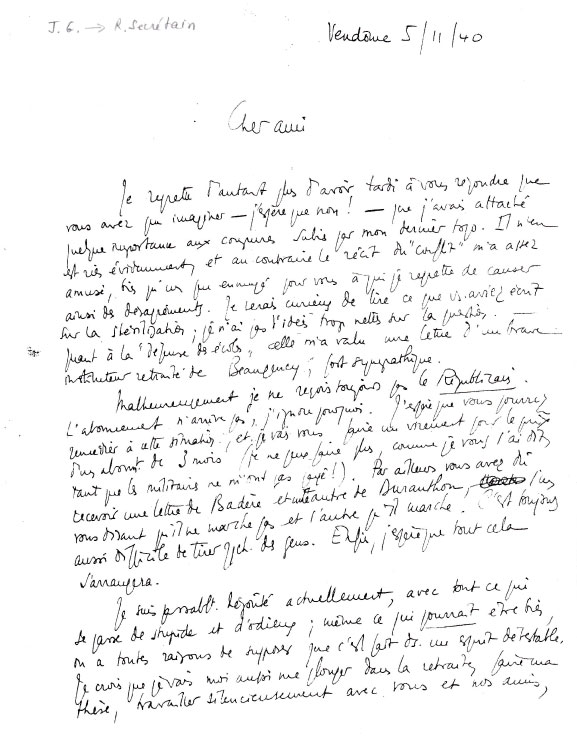 J. G. → R. Secrétain
Vendôme 5/11/40
Cher ami
Je regrette d'autant plus d'avoir tardé à vous répondre que
vous avez pu imaginer — j'espère que non ! — que j'avais attaché
quelque importance aux coupures subies par mon dernier topo. Il n'en
est rien évidemment, et au contraire le récit du "conflit" m'a assez
amusé, bien qu'un peu ennuyé pour vous à qui je regrette de causer
ainsi des désagréments. Je serais curieux de lire ce que vs. aviez écrit
sur la stérilisation ; je n'ai pas l'idée trop nette sur la question. —
Quant à la "défense des écoles", elle m'a valu une lettre d'un brave
instituteur retraité de Beaugency, fort sympathique.
Malheureusement je ne reçois toujours pas le Républicain.
L'abonnement n'arrive pas, j'ignore pourquoi. J'espère que vous pourrez
remédier à cette situation, et je vais vous faire un virement pour le prix
d'un abonmt de 3 mois (je ne peux faire plus, comme je vous l'ai dit,
tant que les militaires ne m'ont pas payé !). Par ailleurs vous avez dû
recevoir une lettre de Badère et une autre de Duranthon, l'un
vous disant qu'il ne marche pas et l'autre qu'il marche. C'est toujours
aussi difficile de tirer qch. des gens. Enfin, j'espère que tout cela
s'arrangera.
Je suis passablt. dégoûté actuellement, avec tout ce qui
se passe de stupide et d'odieux ; même ce qui pourrait être bien,
on a toutes raisons de supposer que c'est fait ds. un esprit détestable.
Je crois que je vais moi aussi me plonger dans la retraite, faire ma
thèse, travailler silencieusement avec vous et nos amis,